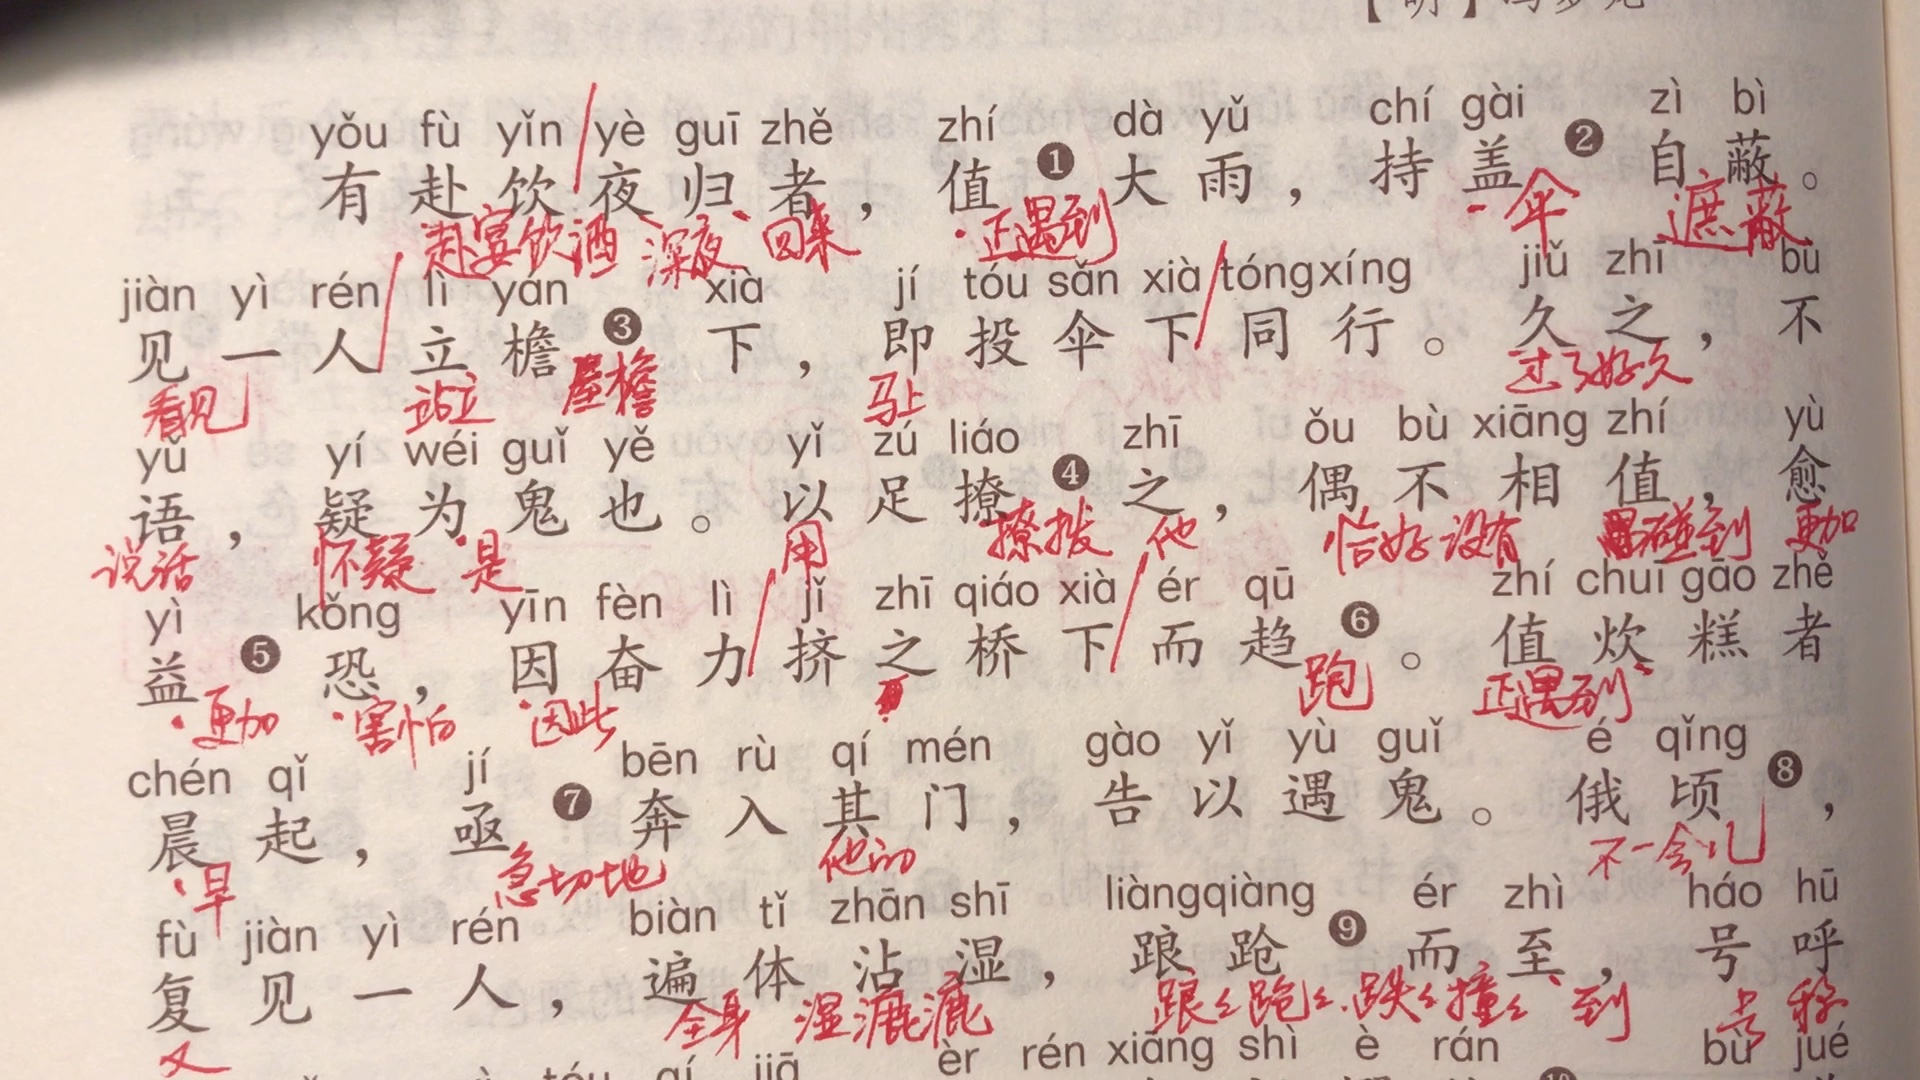 【明】冯梦龙
yǒu fù yǐn yè guī zhě zhí dà yǔ chí gài zì bì
有赴饮夜归者，值❶大雨，持盖❷自蔽。
赴宴饮酒 深夜 回来 正遇到 伞 遮蔽
jiàn yì rén lì yán xià jí tóu sǎn xià tóngxíng jiǔ zhī bù
见一人立檐❸下，即投伞下同行。久之，不
看见 站立 屋檐 马上 过了好久
yǔ yí wéi guǐ yě yǐ zú liáo zhī ǒu bù xiāng zhí yù
语，疑为鬼也。以足撩❹之，偶不相值，愈
说话 怀疑 是 用 撩拨 他 恰好 没有 碰到 更加
yì kǒng yīn fèn lì jǐ zhī qiáo xià ér qū zhí chuī gāo zhě
益❺恐，因奋力挤之桥下而趋❻。值炊糕者
更加 害怕 因此 跑 正遇到
chén qǐ jí bēn rù qí mén gào yǐ yù guǐ é qǐng
晨起，亟❼奔入其门，告以遇鬼。俄顷❽，
早 急切地 他的 不一会儿
fù jiàn yì rén biàn tǐ zhān shī liàngqiàng ér zhì háo hū
复见一人，遍体沾湿，踉跄❾而至，号呼
又 全身 湿漉漉 到 号
tóu qí jiā èr rén xiāng shì è rán bù jué